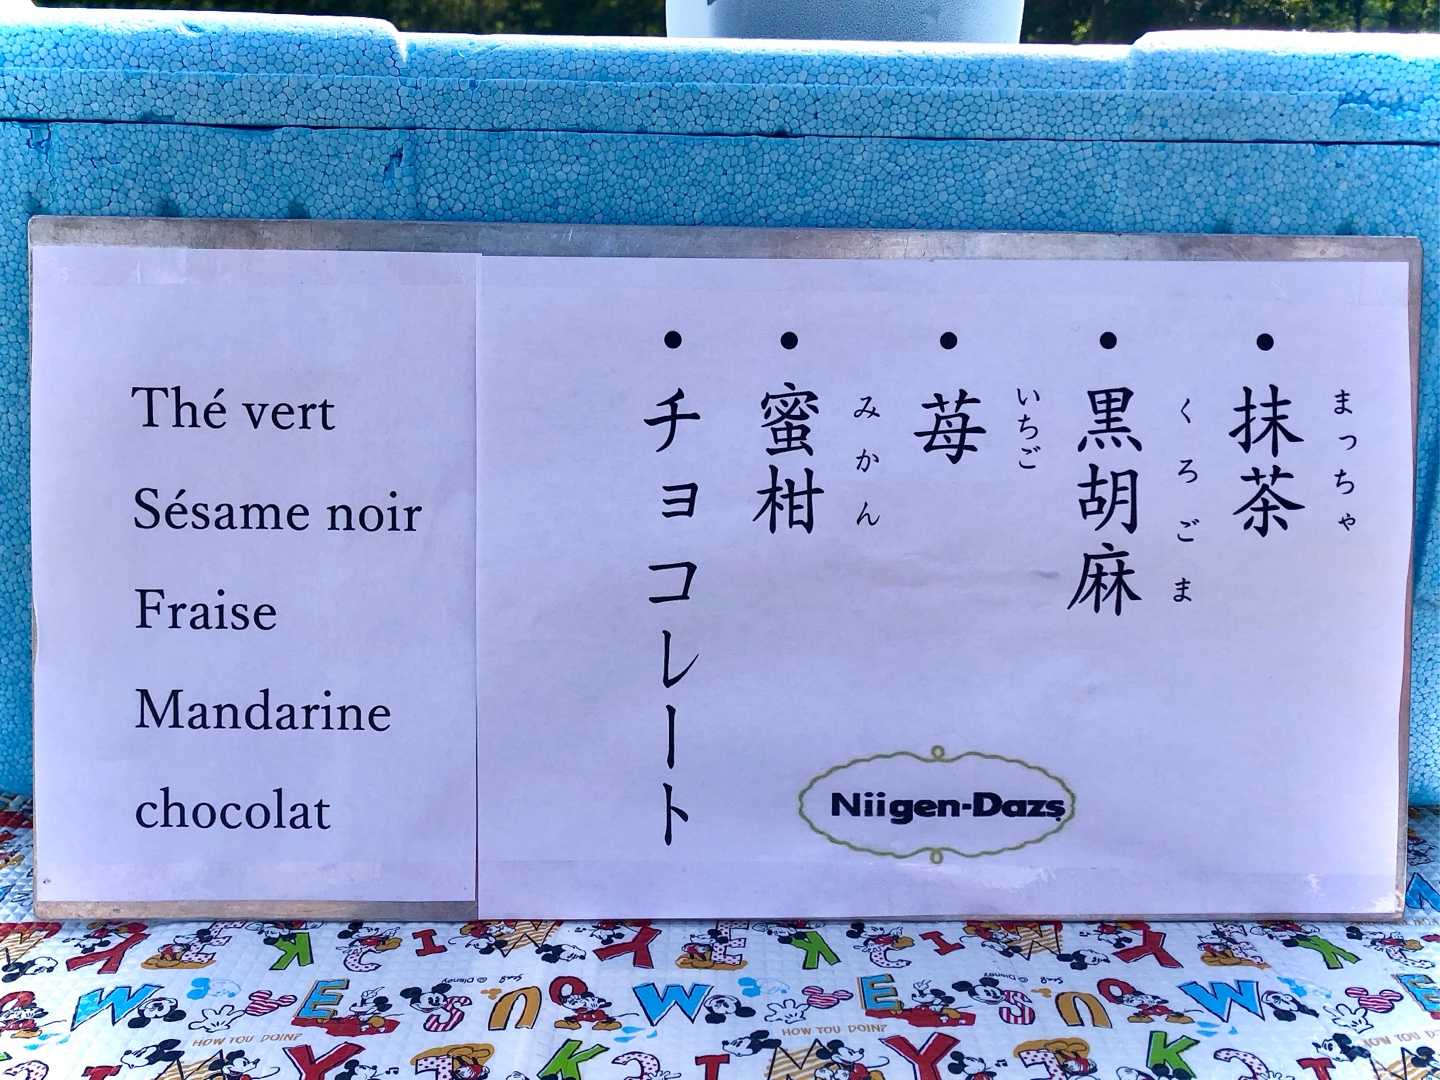 Thé vert
Sésame noir
Fraise
Mandarine
chocolat
まっちゃ
・抹茶
くろごま
・黒胡麻
いちご
・苺
みかん
・蜜柑
・チョコレート
Niigen-Dazs
HOW YOU DOIN?
HOW YOU DOIN?
© Disney